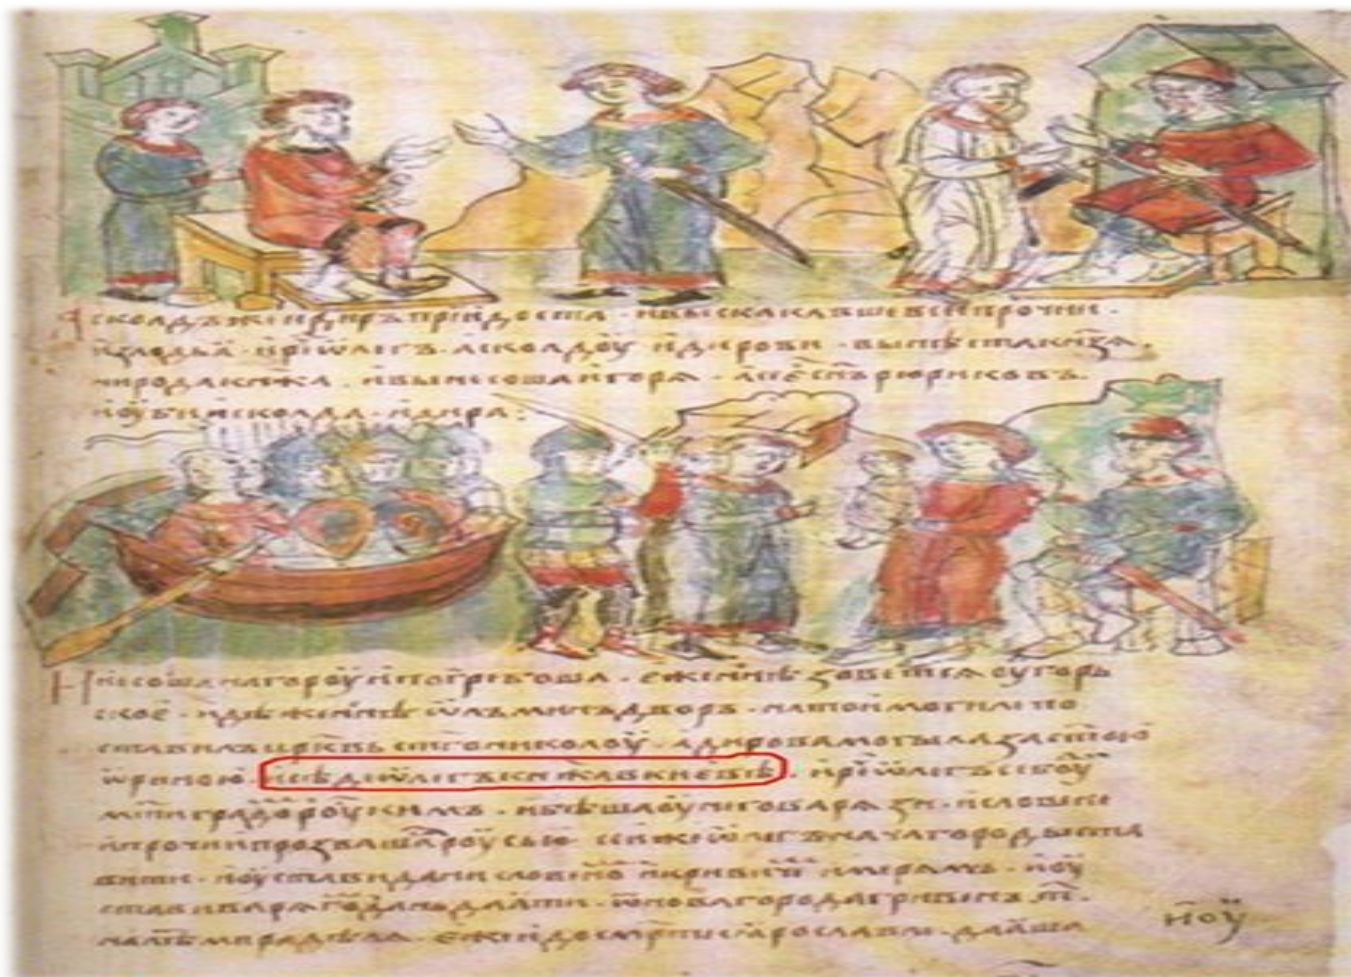 Асколдъ же и диръ придоста · и выскакавше вси прочии ·
из лодьꙗ · и рⷱе ѡлегъ · асколдоу и дирови · вы нѣста кн҃зѧ ·
ни рода кнѧжа · и вынесоша игорѧ · а се е҆ сн҃ъ рюриковъ ·
и оуби асколда · и дира :
И несоша на гороу и погребоша · еже нн҃ѣ зоветсѧ оугорь
ское · идѣже нн҃ѣ ѡлъминъ дворъ · на тои могиле по
ставилъ цр҃квь ст҃го николоу · а дирова могыла за ст҃ою
ѡриною · и сѣде ѡлегъ кнѧжа в киевѣ · и рⷱе ѡлегъ се боуⷣ
мт҃и градоⷨ роукимъ · и бѣша оу него варѧзи · и словене
и прочии прозвашаⷭ роусью · се же ѡлегъ нача городы ста
вити · и оустави дани словеноⷨ и кривичеⷨ и мерѧмъ · и оу
стави варѧгоⷨ дань даꙗти · ѿ новагорода гривенъ т҃ ·
на лѣⷮ мира дѣлѧ · еже и до смр҃ти ꙗрославли · даꙗша
и оу